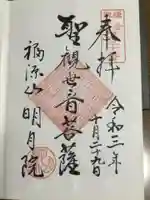 奉拝
令和三年
十月二十九日
聖観世音菩薩
福源山明月院